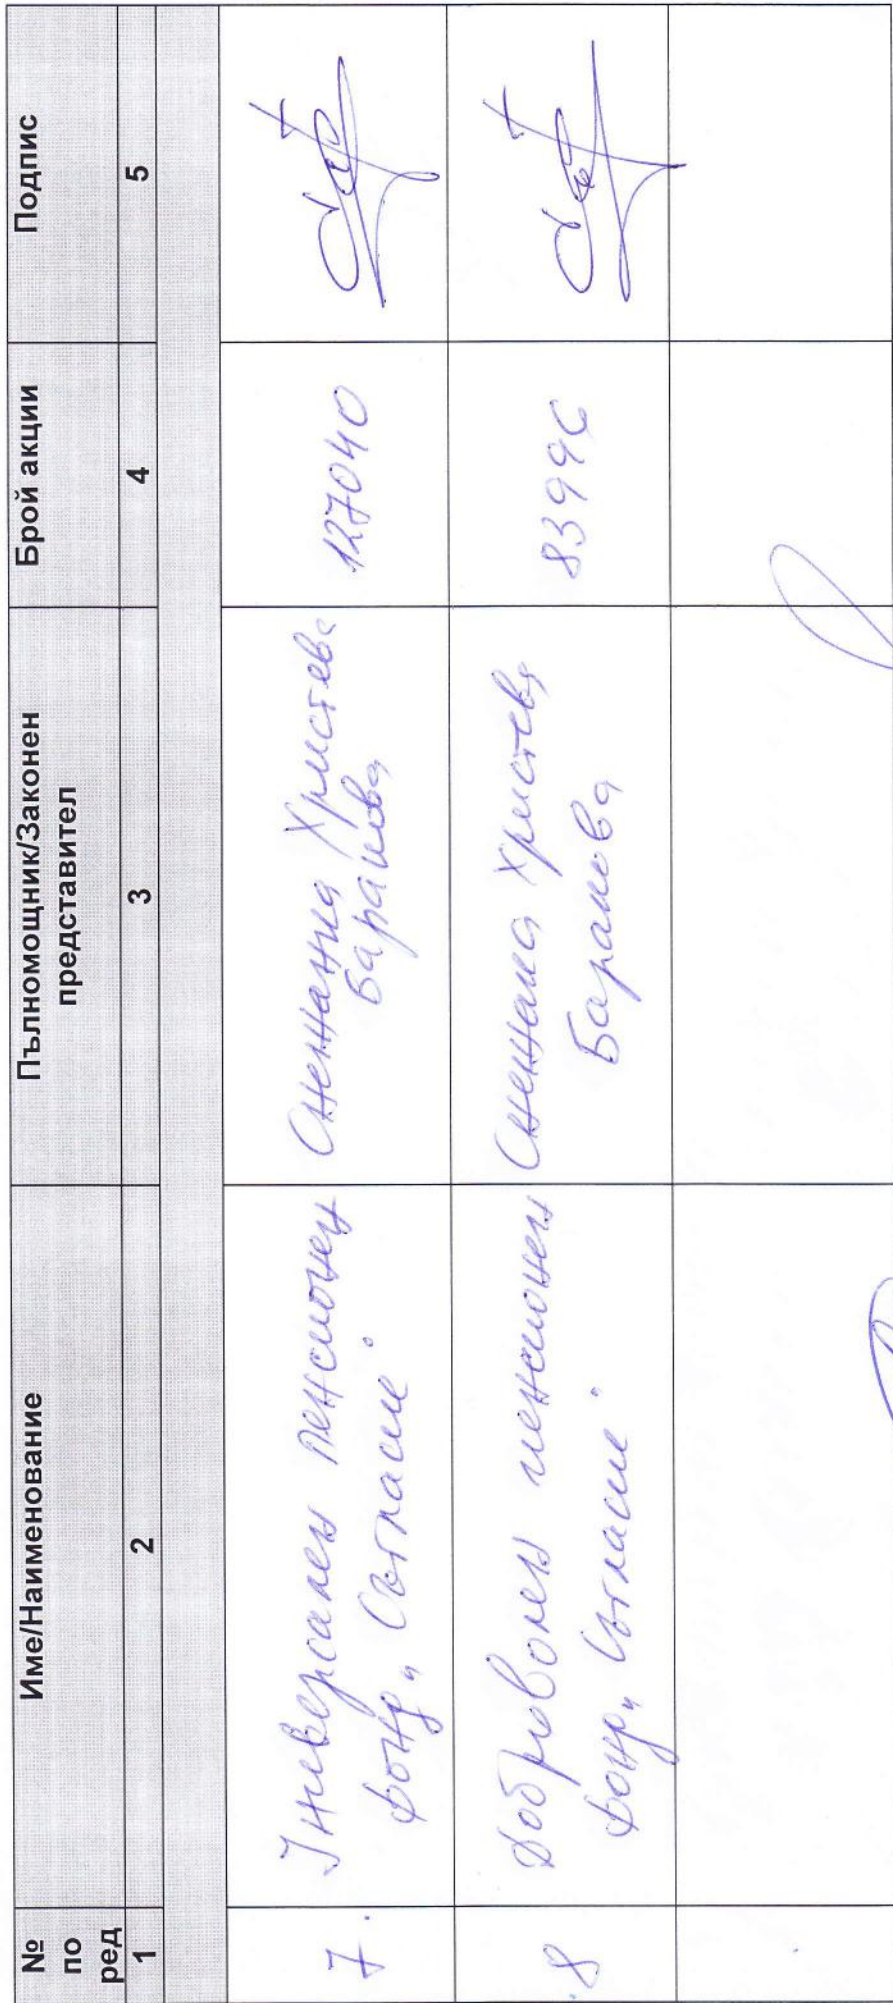 №
по
ред
Име/Наименование
Пълномощник/Законен
представител
Брой акции
Подпис
1
2
3
4
5
7.
Универсален пенсионен
фонд „Съгласие"
Снежана Христева
Баракова
127040
8
Доброволен пенсионен
фонд „Съгласие"
Снежана Христева
Баракова
83996